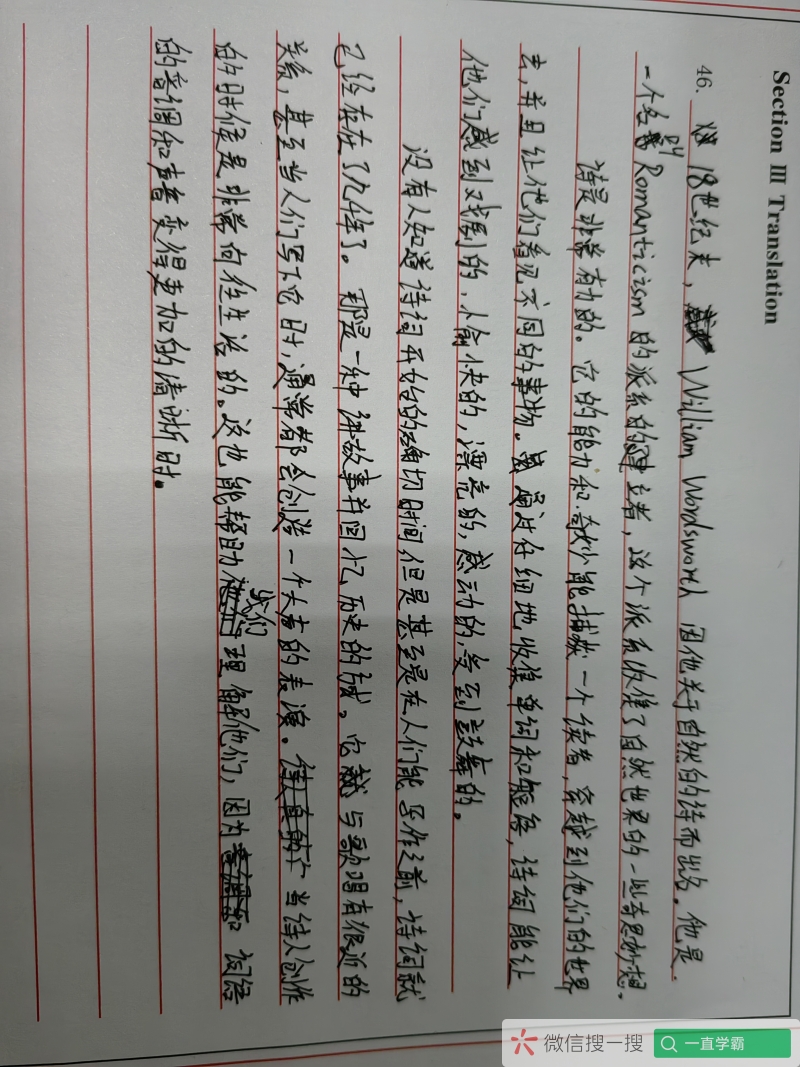 Section III Translation
46. 18世纪末, William Wordsworh 因他关于自然的诗而出名。他是
一个名叫Romanticism 的派系的建立者, 这个派系收集了自然世界的一些奇思妙想.
诗是非常有力的。它的能力和奇妙能捕获一个读者, 穿越到他们的世界
去, 并且让他们看见不同的事物。通过仔细地收集单词和短语, 诗词能让
他们感到戏剧的, 愉快的, 漂亮的, 感动的, 受到鼓舞的。
没有人知道诗词开始的确切时间但是甚至是在人们能写作之前, 诗词就
已经存在了几年了。那是一种讲故事并回忆历史的。它就与歌唱有很近的
关系, 甚至当人们写下它时, 通常都会创造一个大声的表演。当诗人创作
的时候是非常向往生活的。这也能帮助我们理解他们, 因为词语
的音调和声音变得更加的清晰时。
微信搜一搜
一直学霸